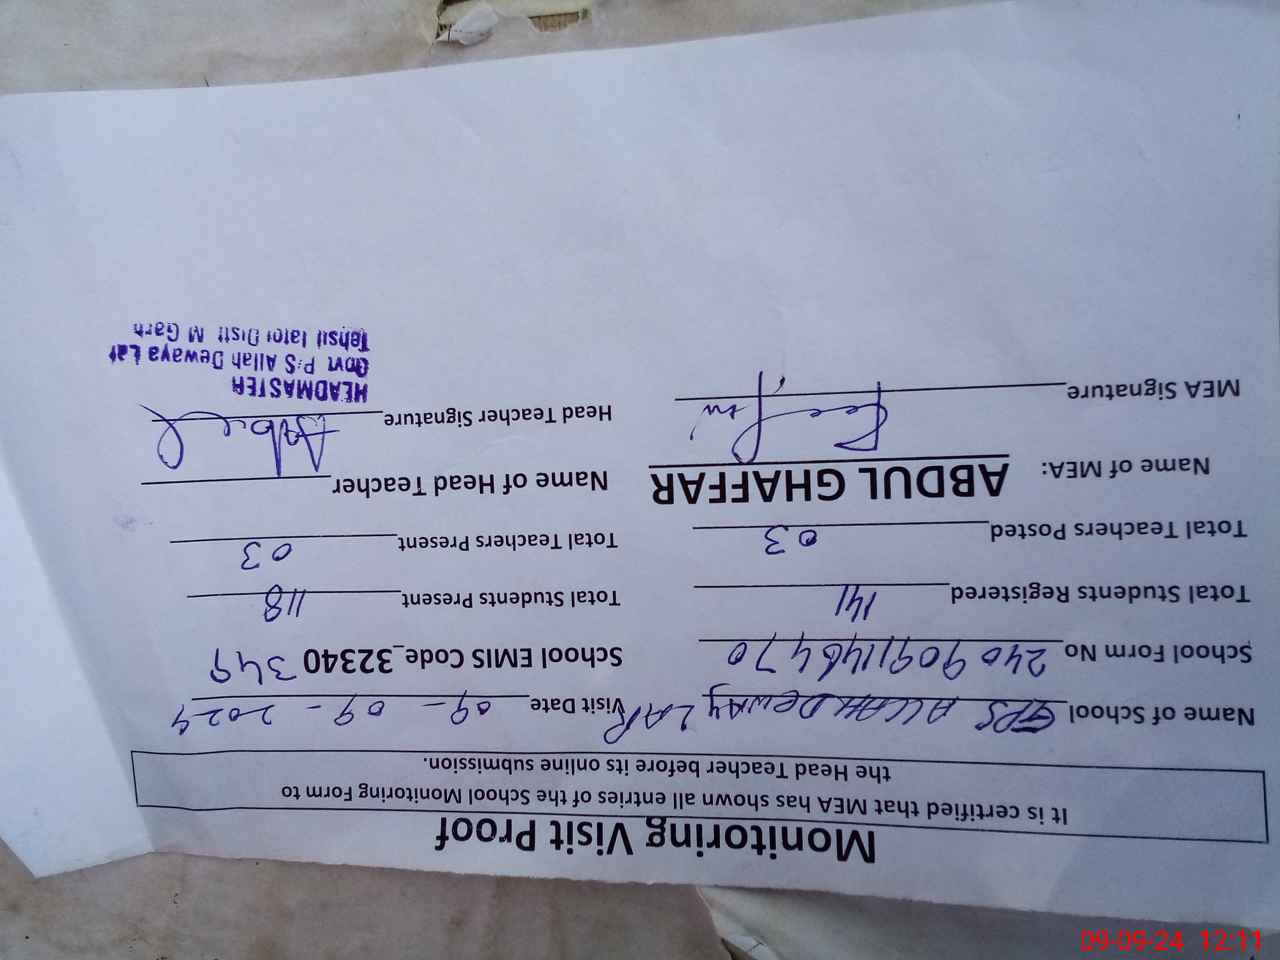 Monitoring Visit Proof
It is certified that MEA has shown all entries of the School Monitoring Form to
the Head Teacher before its online submission.
Name of School GPS ALLAH DEWAY LAR Visit Date 09-09-2024
School Form No 2409091146470 School EMIS Code_32340349
Total Students Registered 141 Total Students Present 118
Total Teachers Posted 03 Total Teachers Present 03
Name of MEA: ABDUL GHAFFAR Name of Head Teacher
MEA Signature Head Teacher Signature
HEADMASTER
Govt P/S Allah Dewaya Lar
Tehsil Jatoi Distt M Garh
09-09-24 12:11